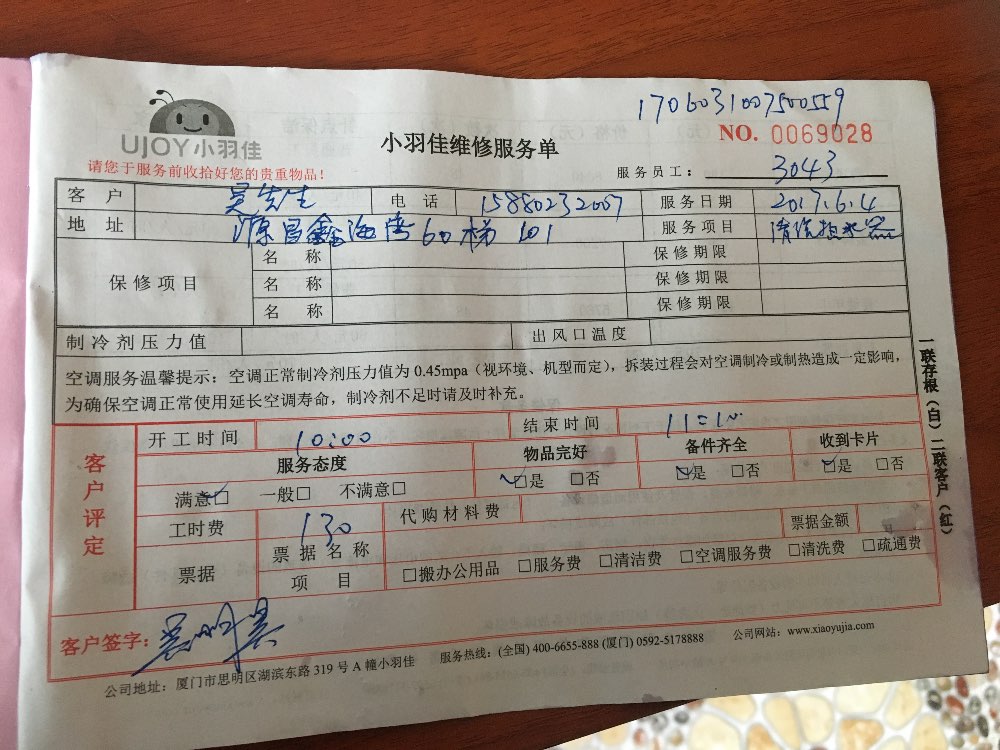 1706031007500559
UJOY小羽佳
小羽佳维修服务单
NO. 0069028
请您于服务前收拾好您的贵重物品！
服务员工： 3043
客户 吴先生 电话 15880232007 服务日期 2017.6.4
地址 源昌鑫海湾60梯101 服务项目 清洗热水器
保修项目 名称 保修期限
名称 保修期限
名称 保修期限
制冷剂压力值 出风口温度
空调服务温馨提示：空调正常制冷剂压力值为 0.45mpa（视环境、机型而定），拆装过程会对空调制冷或制热造成一定影响，
为确保空调正常使用延长空调寿命，制冷剂不足时请及时补充。
客户评定
开工时间 10:00 结束时间 11:10
服务态度 物品完好 备件齐全 收到卡片
满意□ 一般□ 不满意□ □是 □否 □是 □否 □是 □否
工时费 130 代购材料费
票据 票据名称 票据金额
项目 □搬办公用品 □服务费 □清洁费 □空调服务费 □清洗费 □疏通费
客户签字：
公司地址：厦门市思明区湖滨东路 319 号 A 幢小羽佳 服务热线：(全国) 400-6655-888 (厦门) 0592-5178888 公司网站：www.xiaoyujia.com
一联存根（白）二联客户（红）